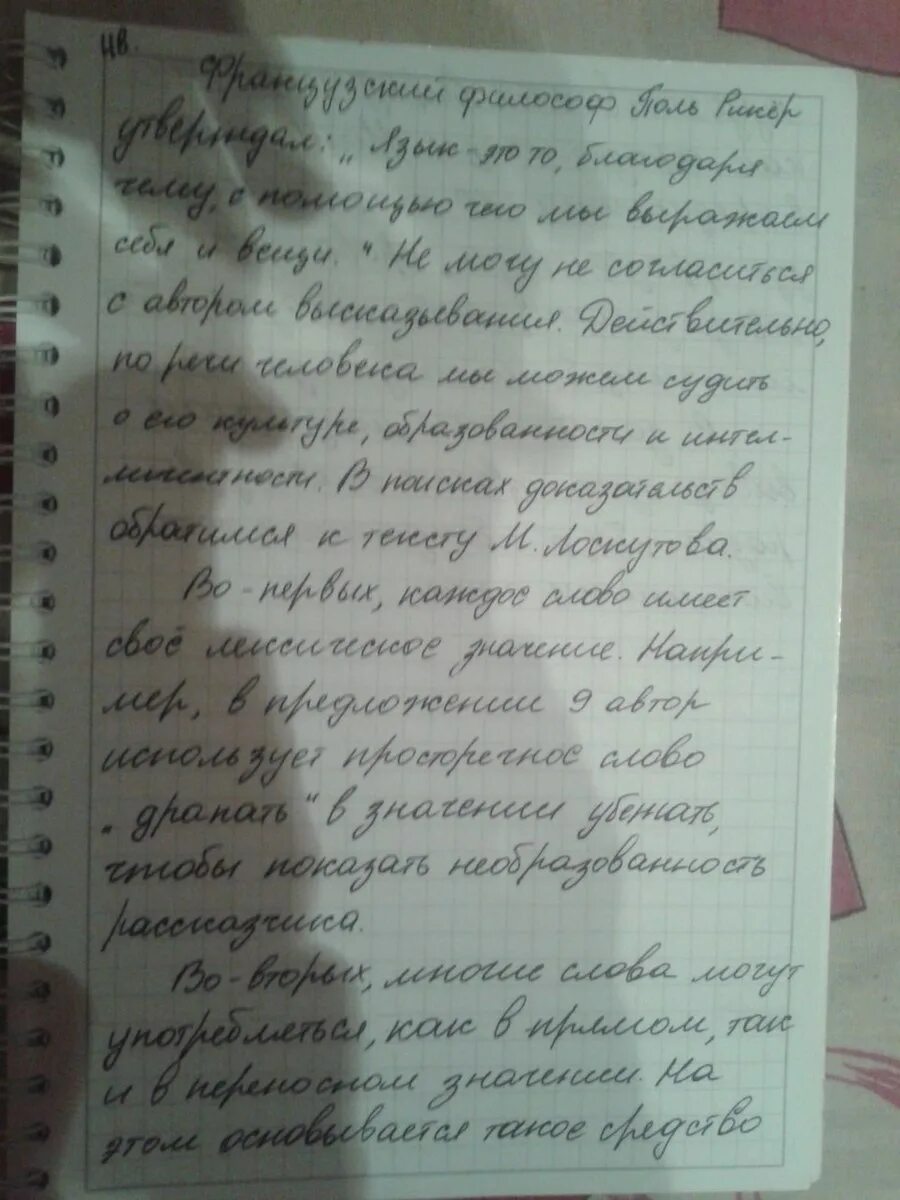 нв.
Французский философ Поль Рикёр
утверждал: „Язык - это то, благодаря
чему, с помощью чего мы выражаем
себя и вещи." Не могу не согласиться
с автором высказывания. Действительно,
по речи человека мы можем судить
о его культуре, образованности и интел-
лигентности. В поисках доказательств
обратимся к тексту М. Лоскутова.
Во-первых, каждое слово имеет
своё лексическое значение. Напри-
мер, в предложении 9 автор
использует просторечное слово
„драпать" в значении убежать,
чтобы показать необразованность
рассказчика.
Во-вторых, многие слова могут
употребляться, как в прямом, так
и в переносном значении. На
этом основывается такое средство